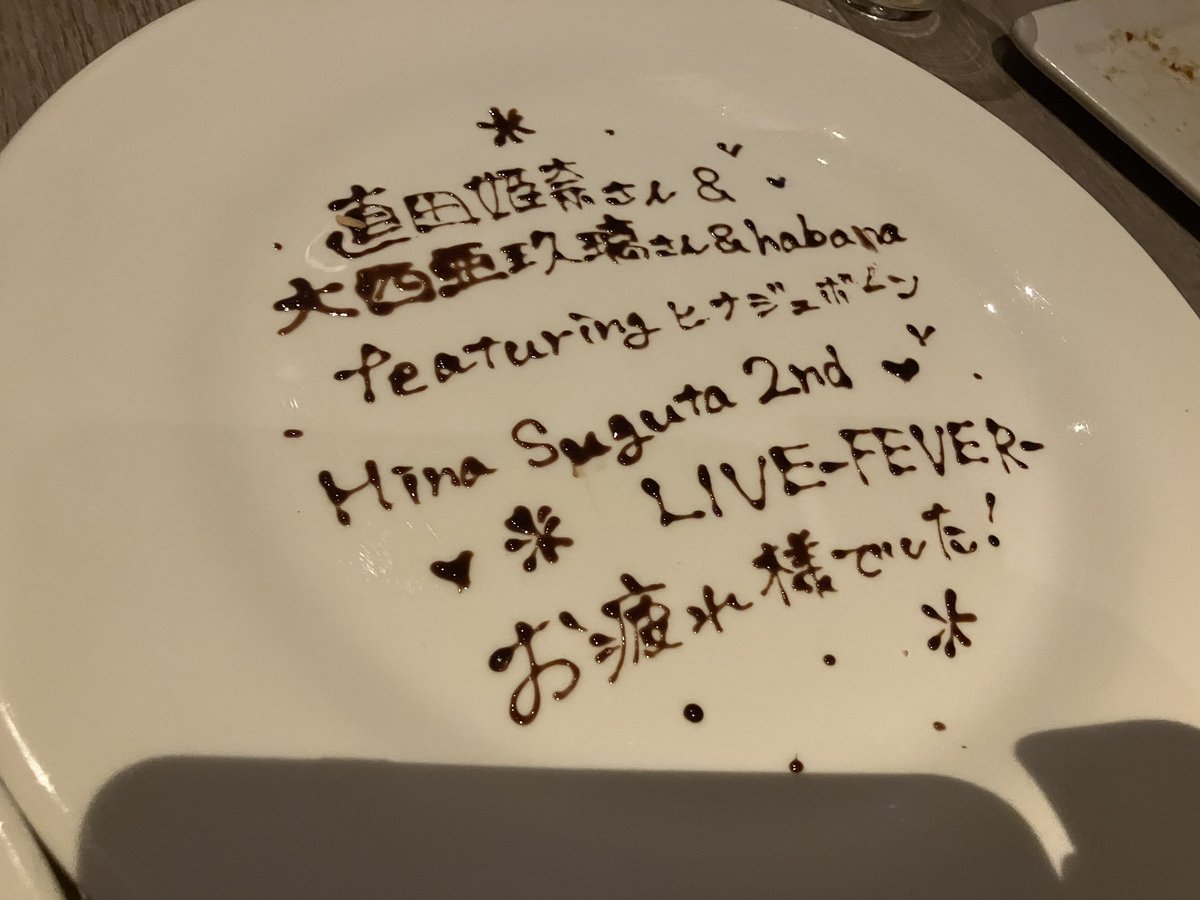 直田姫奈さん&
大西亜玖璃さん&habana
featuring ヒナジェボーン
Hina Suguta 2nd
LIVE-FEVER-
お疲れ様でした!